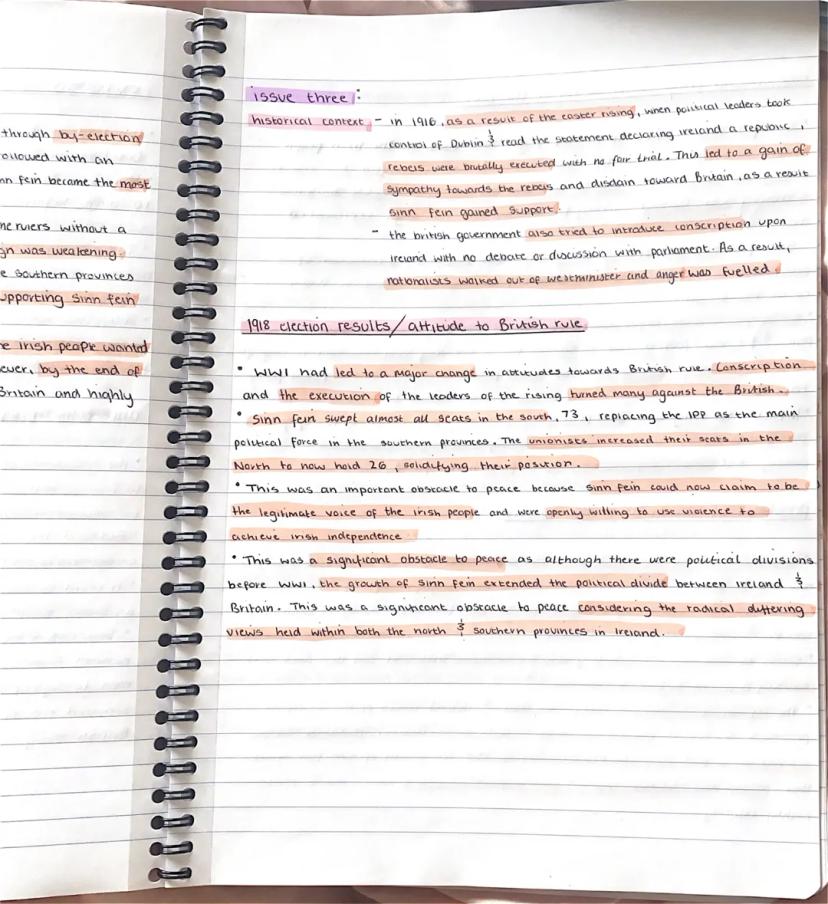 through by-election
ollowed with an
nn fein became the most
ne rulers without a
gn was weakening.
e southern provinces
upporting sinn fein
e irish people wanted
ever, by the end of
Britain and highly
issue three:
historical context - in 1916, as a result of the easter rising, when political leaders took
control of Dublin & read the statement declaring ireland a republic,
rebels were brutally executed with no fair trial. This led to a gain of
sympathy towards the rebels and disdain toward Britain, as a result
sinn fein gained support.
- the british government also tried to introduce conscription upon
ireland with no debate or discussion with parliament. As a result,
nationalists walked out of westminister and anger was fuelled.
1918 election results/attitude to British rule
• WWI had led to a major change in attitudes towards British rule. Conscription
and the execution of the leaders of the rising turned many against the British.
• Sinn fein swept almost all seats in the south, 73, replacing the IPP as the main
political force in the southern provinces. The unionists increased their seats in the
North to now hold 26, solidifying their position.
• This was an important obstacle to peace because sinn fein could now claim to be
the legitimate voice of the irish people and were openly willing to use violence to
achieve irish independence
• This was a significant obstacle to peace as although there were political divisions
before WWI, the growth of sinn fein extended the political divide between ireland &
Britain. This was a significant obstacle to peace considering the radical differing
views held within both the north & southern provinces in ireland.